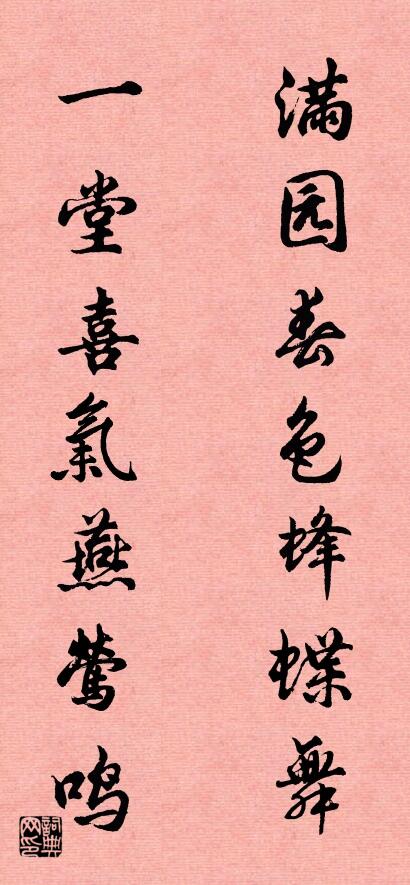 满园春色蜂蝶舞
一堂喜氣燕莺鸣
词典网印